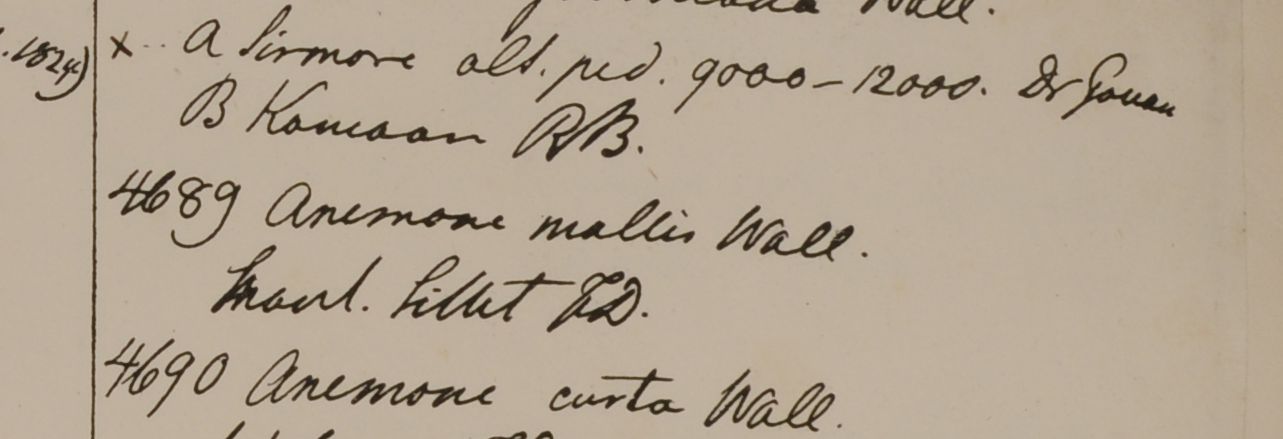 Wall.
.1824) x A Sirmore alt. ped. 9000-12000. Dr Govan
B Kamaon RB.
4689 Anemone mollis Wall.
Sillet FD.
4690 Anemone curta Wall.